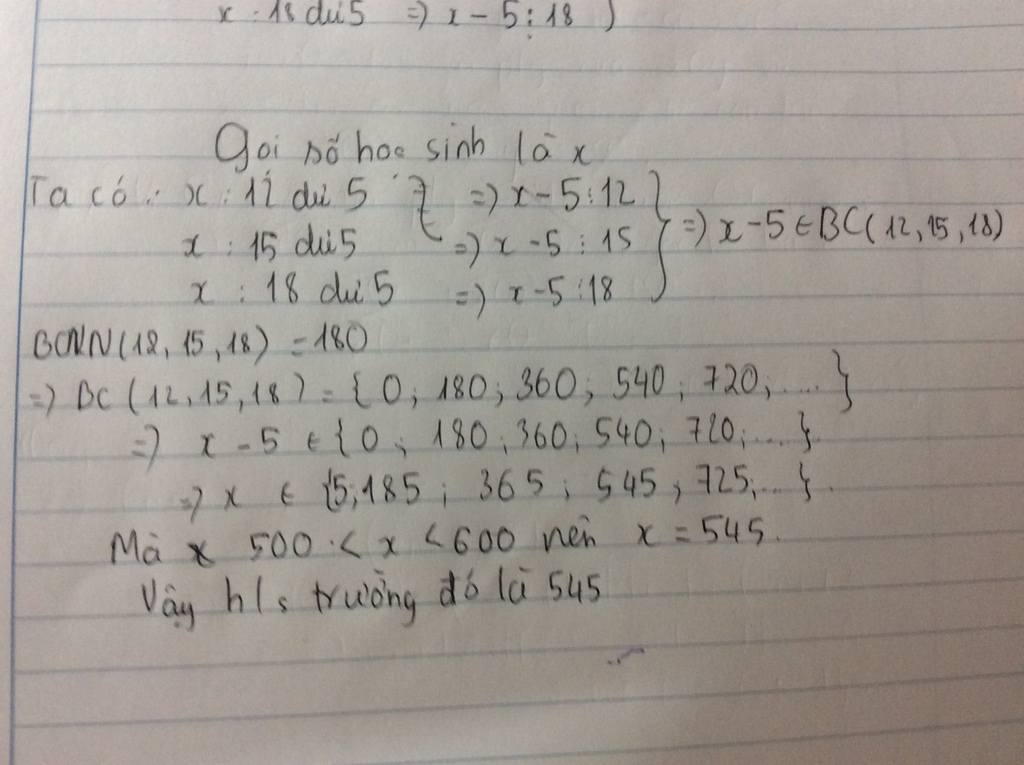 x : 18 dư 5 => x - 5 ⋮ 18 }
Gọi số học sinh là x
Ta có : x : 12 dư 5 } => x - 5 : 12 }
x : 15 dư 5 => x - 5 : 15 } => x - 5 ∈ BC( 12, 15, 18)
x : 18 dư 5 => x - 5 : 18 }
BCNN(12, 15, 18) = 180
=> BC ( 12, 15, 18 ) = { 0 ; 180 ; 360 ; 540 ; 720 ; .... }
=> x - 5 ∈ { 0 ; 180 ; 360 ; 540 ; 720 ; ... }
=> x ∈ {5; 185 ; 365 ; 545 ; 725; ... }.
Mà x 500 < x < 600 nên x = 545.
Vậy h/s trường đó là 545